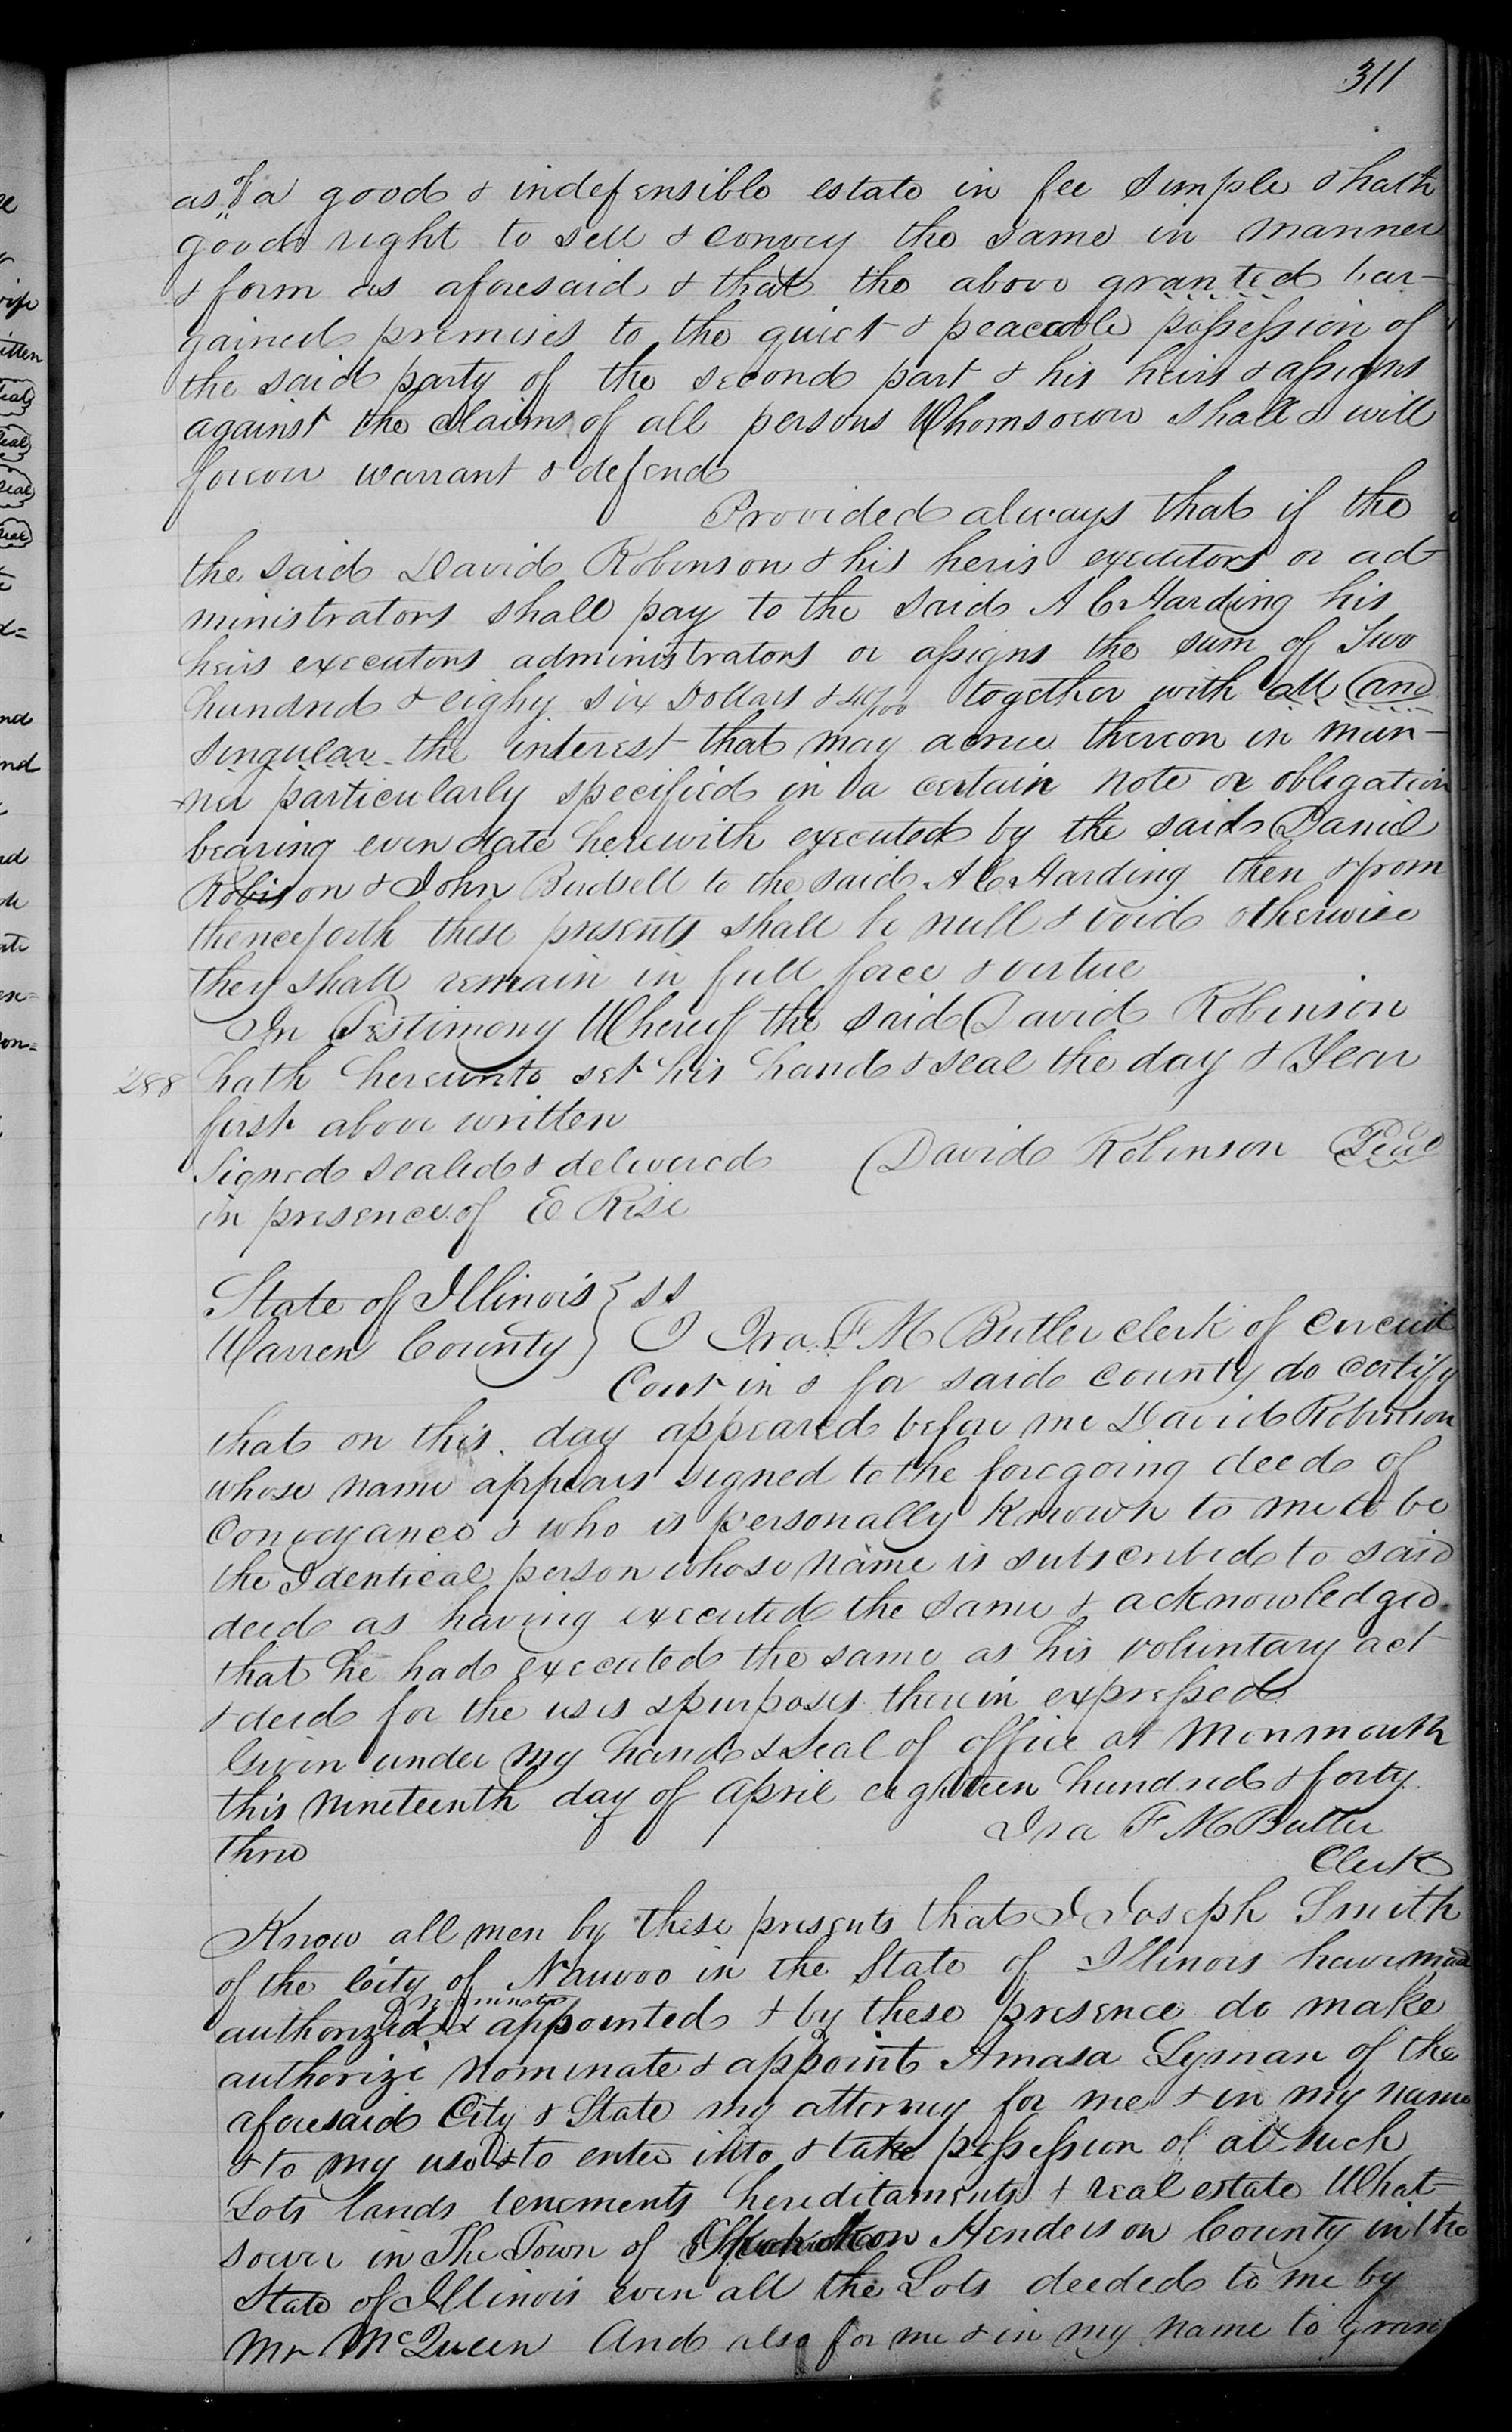 311
as of a good & indefensible estate in fee simple & hath
good right to sell & convey the same in manner
& form as aforesaid & that the above granted bar-
gained premises to the quiet & peaceable possession of
the said party of the second part & his heirs & assigns
against the claims of all persons Whomsoever shall & will
forever warrant & defend
Provided always that if the
the said David Robinson & his heris executors or ad-
ministrators shall pay to the said A C Harding his
heirs executors administrators or assigns the sum of Two
hundred & eighy six Dollars & 40/100 together with all and
singular the interest that may acrue thereon in man-
-ner particularly specified in a certain note or obligation
bearing even date herewith executed by the said Daniel
Robison & John Birdsell to the said A C Harding then & from
thenceforth these presents shall be null & void otherwise
they shall remain in full force & virtue
In Testimony Whereof the said David Robinson
288 hath hereunto set his hand & seal the day & Year
first above written
Signed sealed & delivered David Robinson Seal
in presence of E Rise
State of Illinois } ss
Warren County } I Ira F M Butler clerk of circuit
Court in & for said county do certify
that on this day appeared before me David Robinson
whose name appears signed to the foregoing deed of
Conveyance & who is personally Known to me to be
the Identical person whose name is subscribed to said
deed as having executed the same & acknowledged
that he had executed the same as his voluntary act
& deed for the uses & purposes therein expressed
Given under my hand & Seal of office at Monmouth
this nineteenth day of April eighteen hundred & forty
three
Ira F M Butler
Clerk
Know all men by these presents that I Joseph Smith
of the City of Nauvoo in the State of Illinois have mad
nominated
authorized & appointed & by these presence do make
authorize nominate & appoint Amasa Lyman of the
aforesaid City & State my attorney for me & in my name
& to my use & to enter into & take possession of all such
Lots lands tenements hereditaments & real estate What-
soever in The Town of Henderson County in the
State of Illinois even all the Lots deeded to me by
Mr McQueen And also for me & in my name to gran